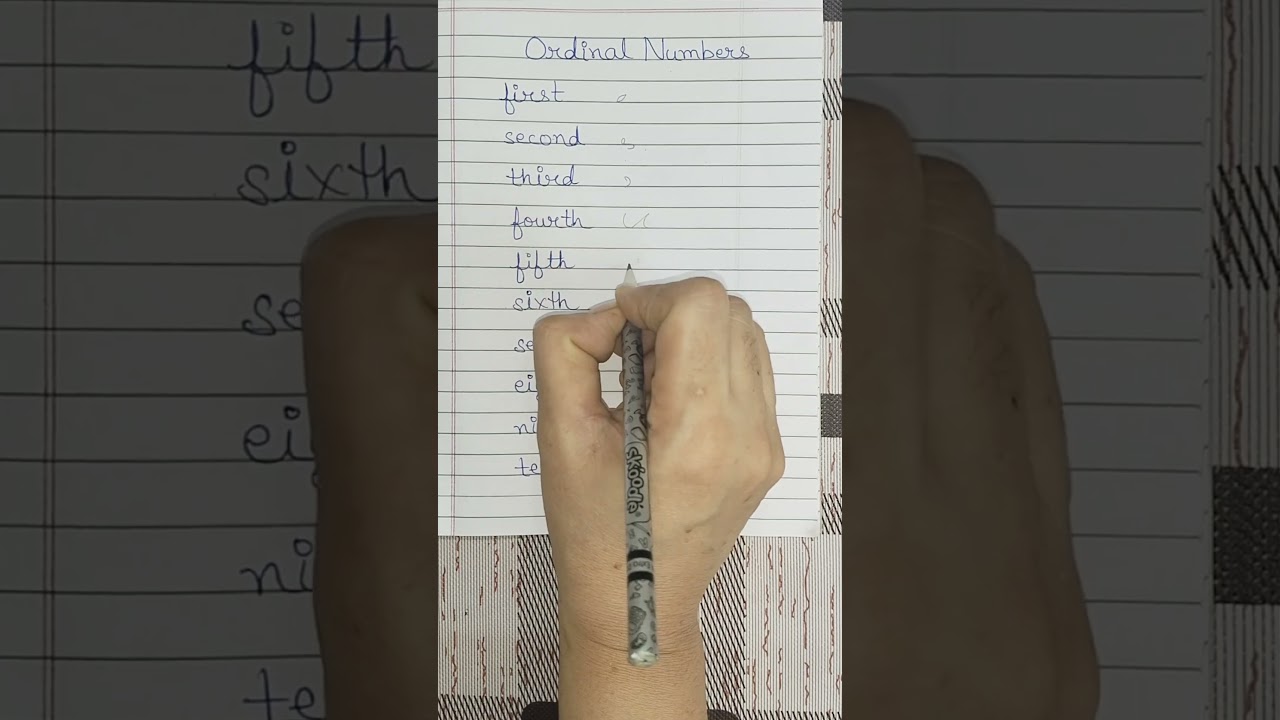 Ordinal Numbers
first
second
third
fourth
fifth
sixth
se
ei
ni
te
skoodle